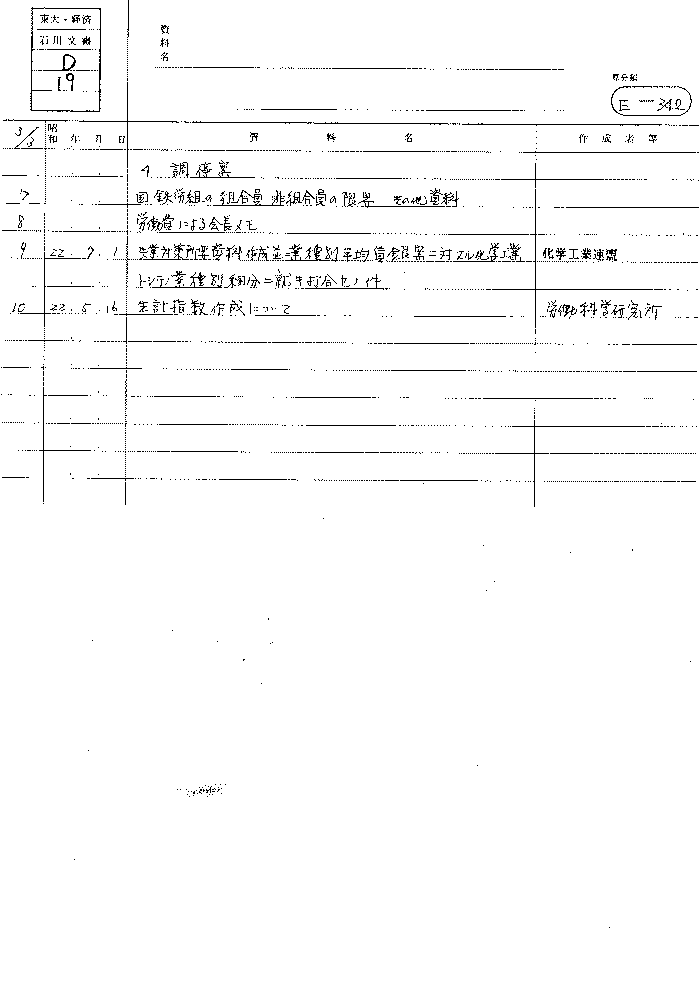 東大・経済
石川文書
D
19
資料名
原分類
E-342
3/3 昭和 年 月 日 資料名 作成者等
4 調停案
7 国鉄労組の組合員非組合員の限界 その他資料
8 労働賞による会長メモ
9 22. 7. 1 失業対策所要資料作成並ニ業種別平均賃金限界ニ対スル化学工業 化学工業連盟
トシテノ業種別細分ニ就キ打合セノ件
10 22. 5. 16 生計指数作成について 労働科学研究所